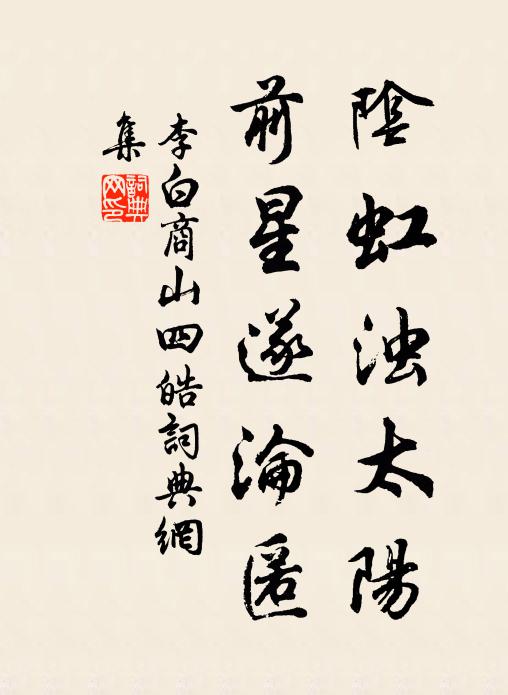 陰虹浊太陽
前星遂淪匿
李白商山四皓詞典網
集
詞典網印